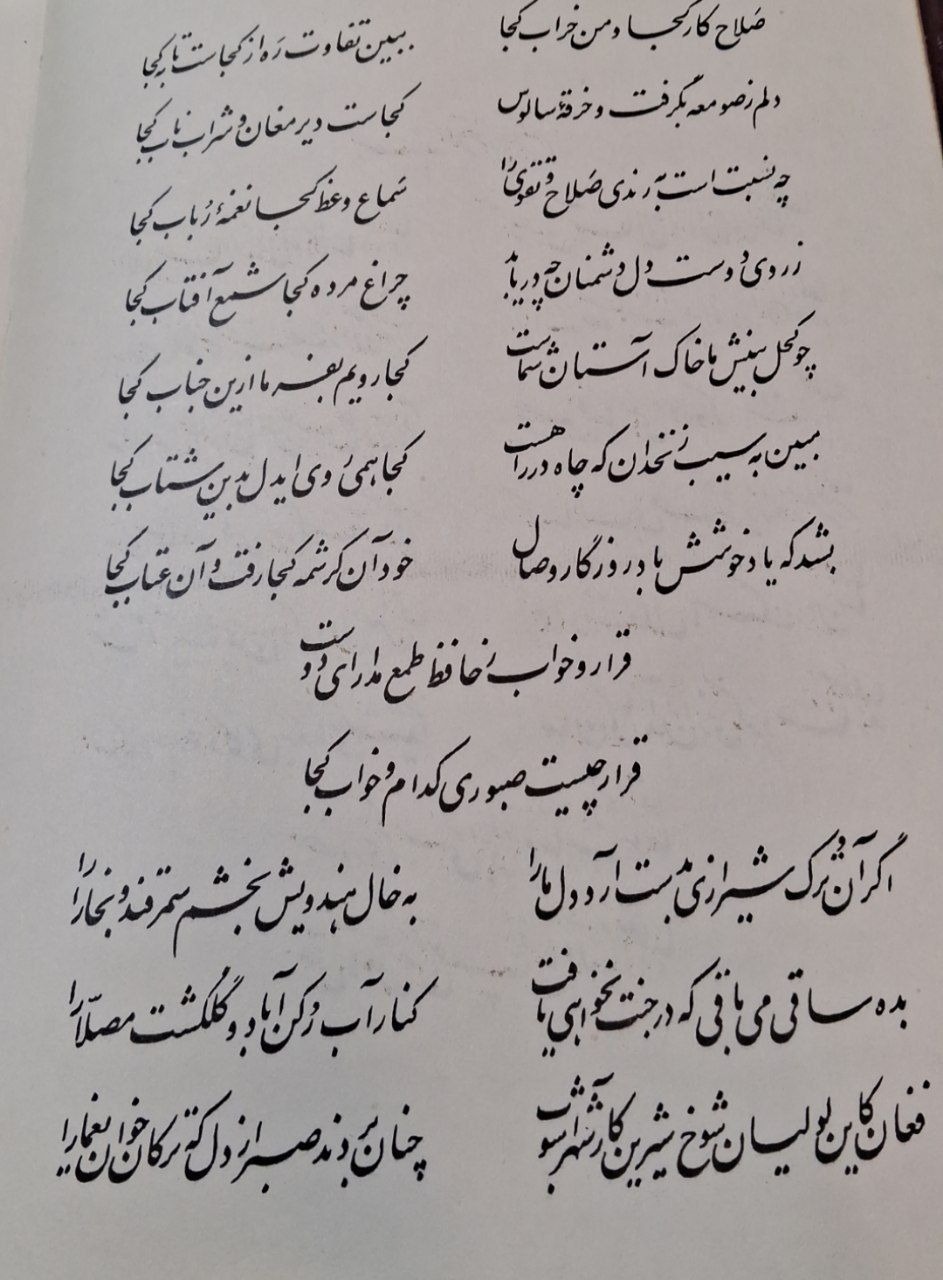 صَلاح کار کجا و من خراب کجا ببین تفاوت رَه از کجاست تا بکجا
دلم ز صومعه بگرفت و خرقهٔ سالوس کجاست دیر مغان و شراب ناب کجا
چه نسبت است به رندی صَلاح و تقوی را سَماع وعظ کجا نغمهٔ رُباب کجا
ز روی دوست دل دشمنان چه دریابد چراغ مرده کجا شمع آفتاب کجا
چو کحل بینش ما خاک آستان شماست کجا رویم بفرما ازین جناب کجا
مبین به سیب زنخدان که چاه در راهست کجا همی رَوی ایدل بدین شتاب کجا
بشد که یاد خوشش باد روزگار وصال خود آن کرشمه کجا رفت و آن عتاب کجا
قرار و خواب ز حافظ طمع مدار ای دوست
قرار چیست صبوری کدام و خواب کجا
اگر آن تُرک شیرازی بدست آرد دل ما را به خال هندویش بخشم سمرقند و بخارا را
بده ساقی می باقی که در جنت نخواهی یافت کنار آب رُکن آباد و گُلگشت مصلّا را
فغان کاین لولیان شوخ شیرین کار شهر آشوب چنان بردند صبر از دل که ترکان خوان یغما را